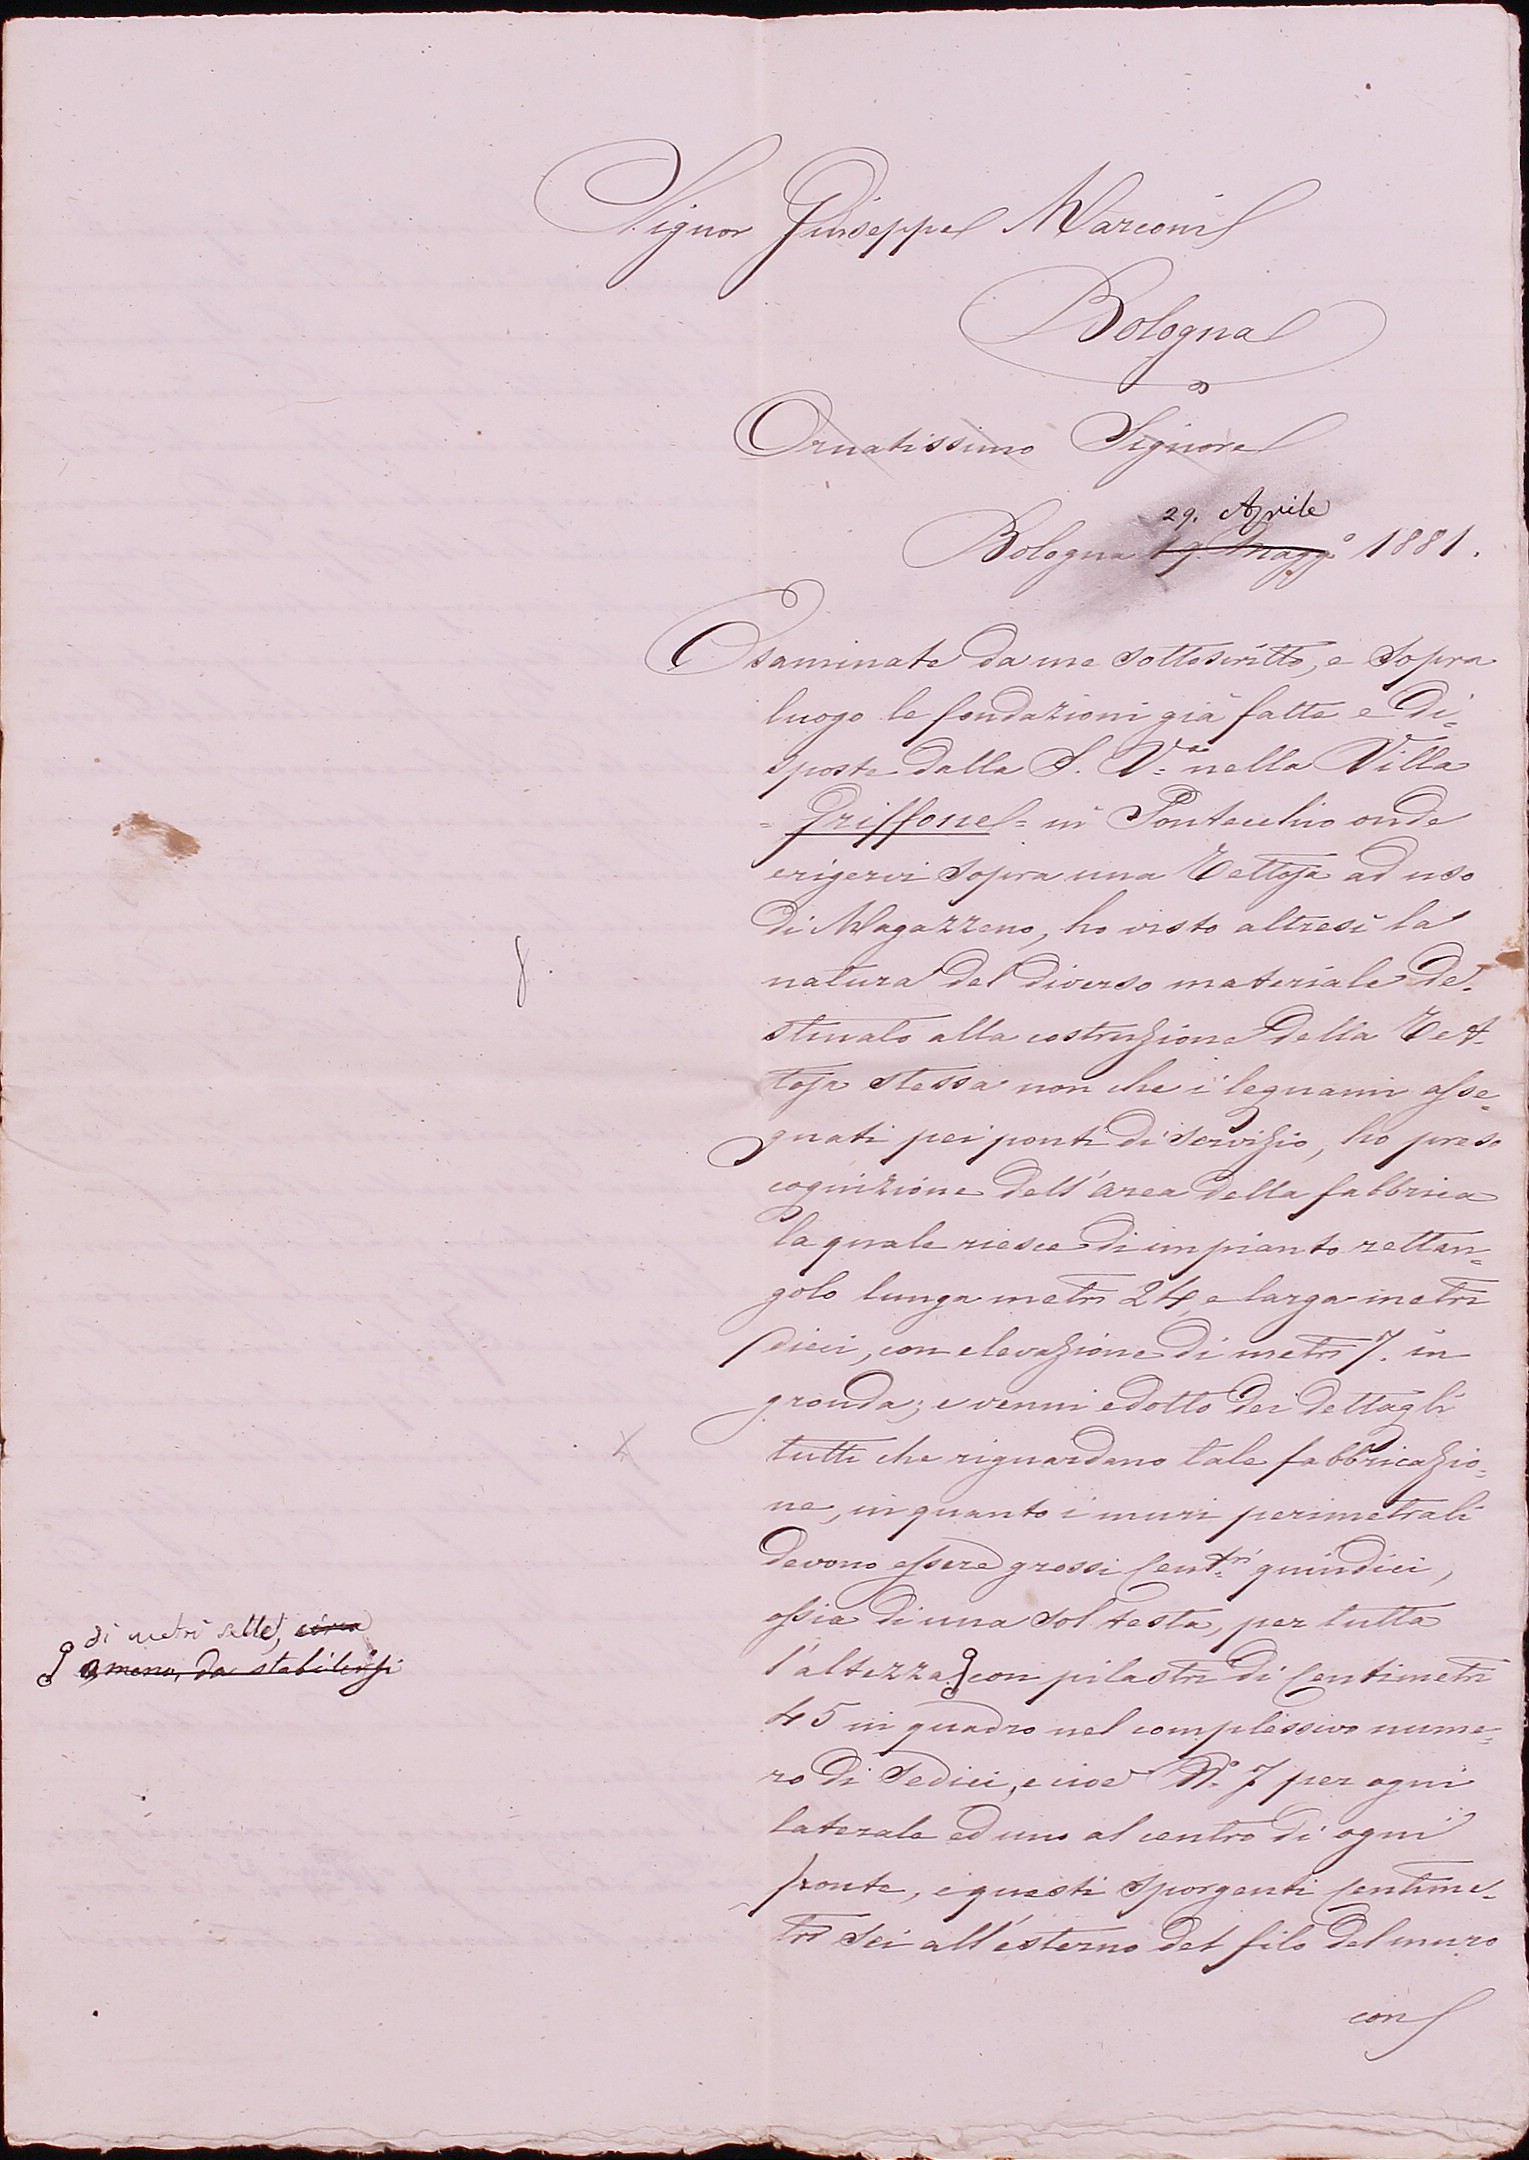 Signor Giuseppe Marconi
Bologna
Ornatissimo Signore
29. Aprile
Bologna 19. Magg.º 1881.
Esaminate da me sottoscritto, e sopra
luogo le fondazioni già fatte e di=
sposte dalla S. V.ª nella Villa
= Griffone = in Pontecchio onde
erigervi sopra una Tettoja ad uso
di Magazzeno, ho visto altresì la
natura del diverso materiale de=
stinato alla costruzione della Tet=
toja stessa non che i legnami asse=
gnati pei ponti di servizio, ho preso
cognizione dell'area della fabbrica
la quale riesce di impianto rettan=
golo lunga metri 24, e larga metri
dieci, con elevazione di metri 7. in
gronda; e venni edotto dei dettagli
tutti che riguardano tale fabbricazio=
ne, in quanto i muri perimetrali
devono essere grossi Cent.ri quindici,
ossia di una sol testa, per tutta
di metri sette, circa
o meno, da stabilirsi
l'altezza con pilastri di Centimetri
45 in quadro nel complessivo nume=
ro di sedici, e cioè N.º 7 per ogni
laterale ed uno al centro di ogni
fronte, e questi sporgenti Centime=
tri sei all'esterno del filo del muro
con